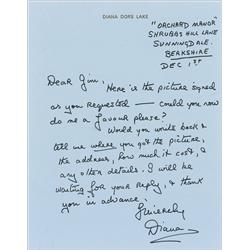 DIANA DORS LAKE
"ORCHARD MANOR"
SHRUBBS HILL LANE
SUNNINGDALE.
BERKSHIRE
DEC 1ST
Dear Jim, Here is the picture signed
as you requested — could you now
do me a favour please?
Would you write back &
tell me where you got the picture,
the address, how much it cost, &
any other details. I will be
waiting for your reply, & thank
you in advance,
Sincerely
Diana